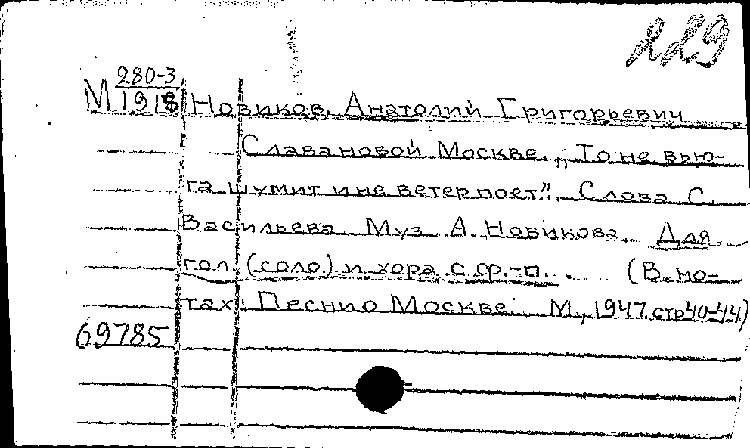 229
280-3
М 1918 Новиков, Анатолий Григорьевич
Слава новой Москве. „То не вью-
га шумит и не ветер поет". Слова С.
Васильева Муз. А. Новикова. Для
гол. (соло) и хора с ф.-п. (В но-
тах: Песни о Москве. М., 1947 стр 40-44)
69785